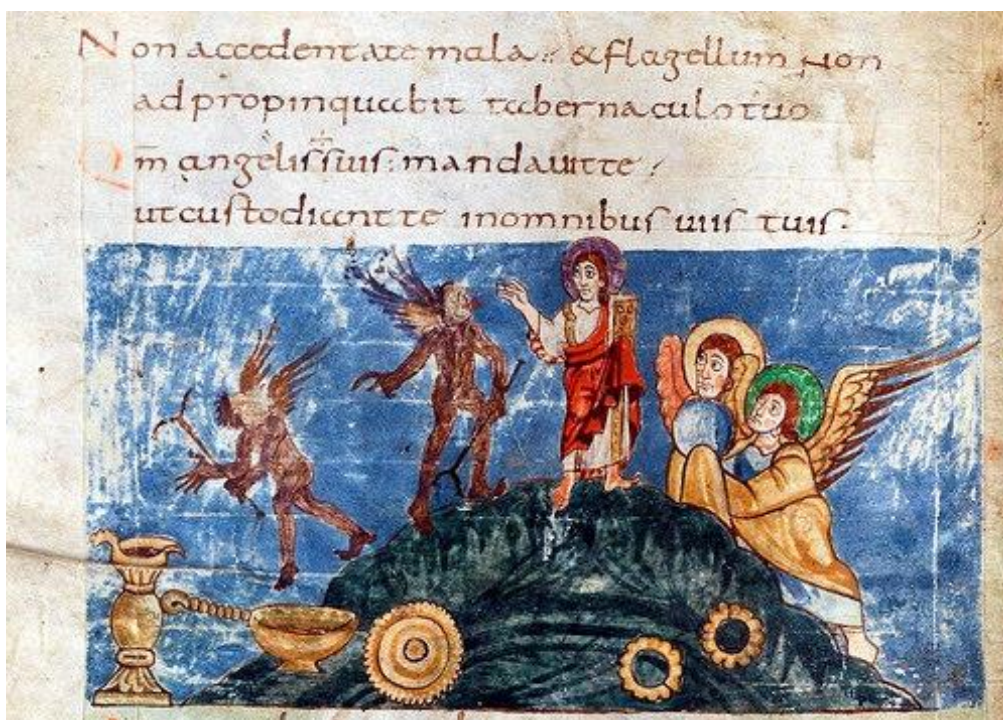 Non accedent ad te mala: & flagellum non
adpropinquabit tabernaculo tuo
Qm̄ angelis suis mandavit te
ut custodiant te in omnibus viis tuis.